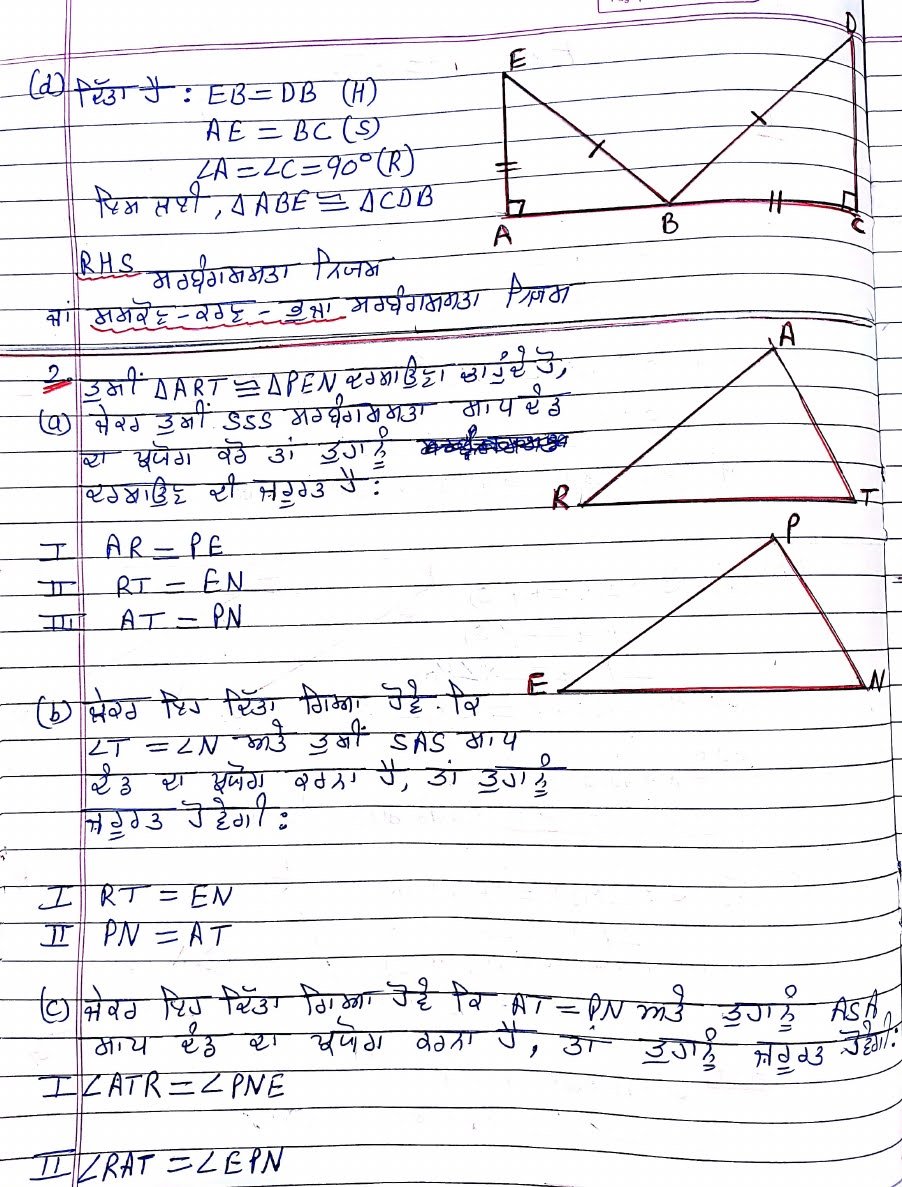 (d) ਦਿੱਤਾ ਹੈ : EB = DB (H)
AE = BC (S)
∠A = ∠C = 90° (R)
ਇਸ ਲਈ, ΔABE ≅ ΔCDB
RHS ਸਰਬੰਗਸਮਤਾ ਨਿਯਮ
ਜਾਂ ਸਮਕੋਣ - ਕਰਣ - ਭੁਜਾ ਸਰਬੰਗਸਮਤਾ ਨਿਯਮ
E
D
A
B
C
2. ਤੁਸੀਂ ΔART ≅ ΔPEN ਦਰਸਾਉਣਾ ਚਾਹੁੰਦੇ ਹੋ,
(a) ਜੇਕਰ ਤੁਸੀਂ SSS ਸਰਬੰਗਸਮਤਾ ਮਾਪ ਦੰਡ
ਦਾ ਪ੍ਰਯੋਗ ਕਰੋ ਤਾਂ ਤੁਹਾਨੂੰ
ਦਰਸਾਉਣ ਦੀ ਜ਼ਰੂਰਤ ਹੈ :
I AR = PE
II RT = EN
III AT = PN
A
R
T
P
E
N
(b) ਜੇਕਰ ਇਹ ਦਿੱਤਾ ਗਿਆ ਹੋਵੇ ਕਿ
∠T = ∠N ਅਤੇ ਤੁਸੀਂ SAS ਮਾਪ
ਦੰਡ ਦਾ ਪ੍ਰਯੋਗ ਕਰਨਾ ਹੈ, ਤਾਂ ਤੁਹਾਨੂੰ
ਜ਼ਰੂਰਤ ਹੋਵੇਗੀ :
I RT = EN
II PN = AT
(c) ਜੇਕਰ ਇਹ ਦਿੱਤਾ ਗਿਆ ਹੋਵੇ ਕਿ AT = PN ਅਤੇ ਤੁਹਾਨੂੰ ASA
ਮਾਪ ਦੰਡ ਦਾ ਪ੍ਰਯੋਗ ਕਰਨਾ ਹੈ, ਤਾਂ ਤੁਹਾਨੂੰ ਜ਼ਰੂਰਤ ਹੋਵੇਗੀ:
I ∠ATR = ∠PNE
II ∠RAT = ∠EPN